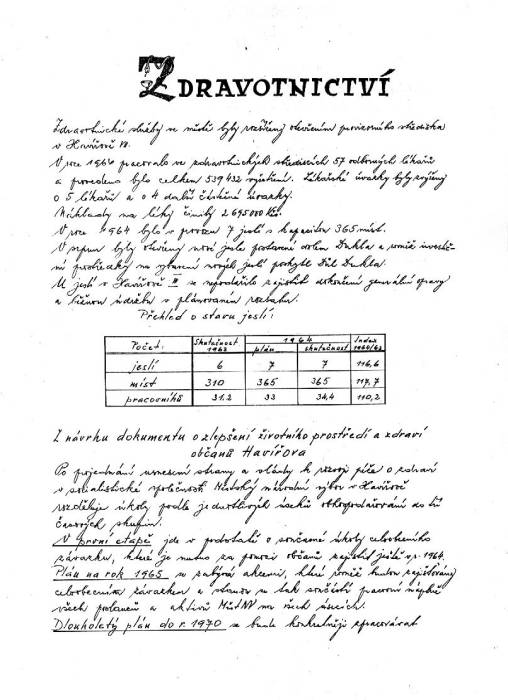 ZDRAVOTNICTVÍ
Zdravotnické služby ve městě byly rozšířeny otevřením provizorního střediska
v Havířově VI.
V roce 1964 pracovalo ve zdravotnických střediscích 57 odborných lékařů
a provedeno bylo celkem 539 432 vyšetření. Lékařské úvazky byly zvýšeny
o 5 lékařů a o 4 další částečné úvazky.
Náklady na léky činily 2 695 000 Kčs.
V roce 1964 bylo v provozu 7 jeslí s kapacitou 365 míst.
V srpnu byly otevřeny nové jesle postavené dolem Dukla a rovněž investič-
ní prostředky na vybavení nových jeslí poskytl Důl Dukla.
U jeslí v Havířově II se nepodařilo zajistit dokončení generální opravy
a běžnou údržbu v plánovaném rozsahu.
Přehled o stavu jeslí:
Počet: Skutečnost 1963 1964 Index 1964/63
plán skutečnost
jeslí 6 7 7 116,6
míst 310 365 365 117,7
pracovníků 31,2 33 34,4 110,2
Z návrhu dokumentu o zlepšení životního prostředí a zdraví
občanů Havířova
Po projednání usnesení strany a vlády k rozvoji péče o zdraví
v socialistické společnosti Městský národní výbor v Havířově
rozděluje úkoly podle jednotlivých úseků obhospodařování do tří
časových skupin.
V první etapě jde v podstatě o současné úkoly celoobecního
závazku, které je nutno za pomoci občanů zajistit ještě v r. 1964.
Plán na rok 1965 se zabývá akcemi, které rovněž budou zajišťovány
celoobecním závazkem a stanou se tak součástí pracovní náplně
všech poslanců a aktivů MěstNV na všech úsecích.
Dlouholetý plán do r. 1970 se bude konkrétněji zpracovávat